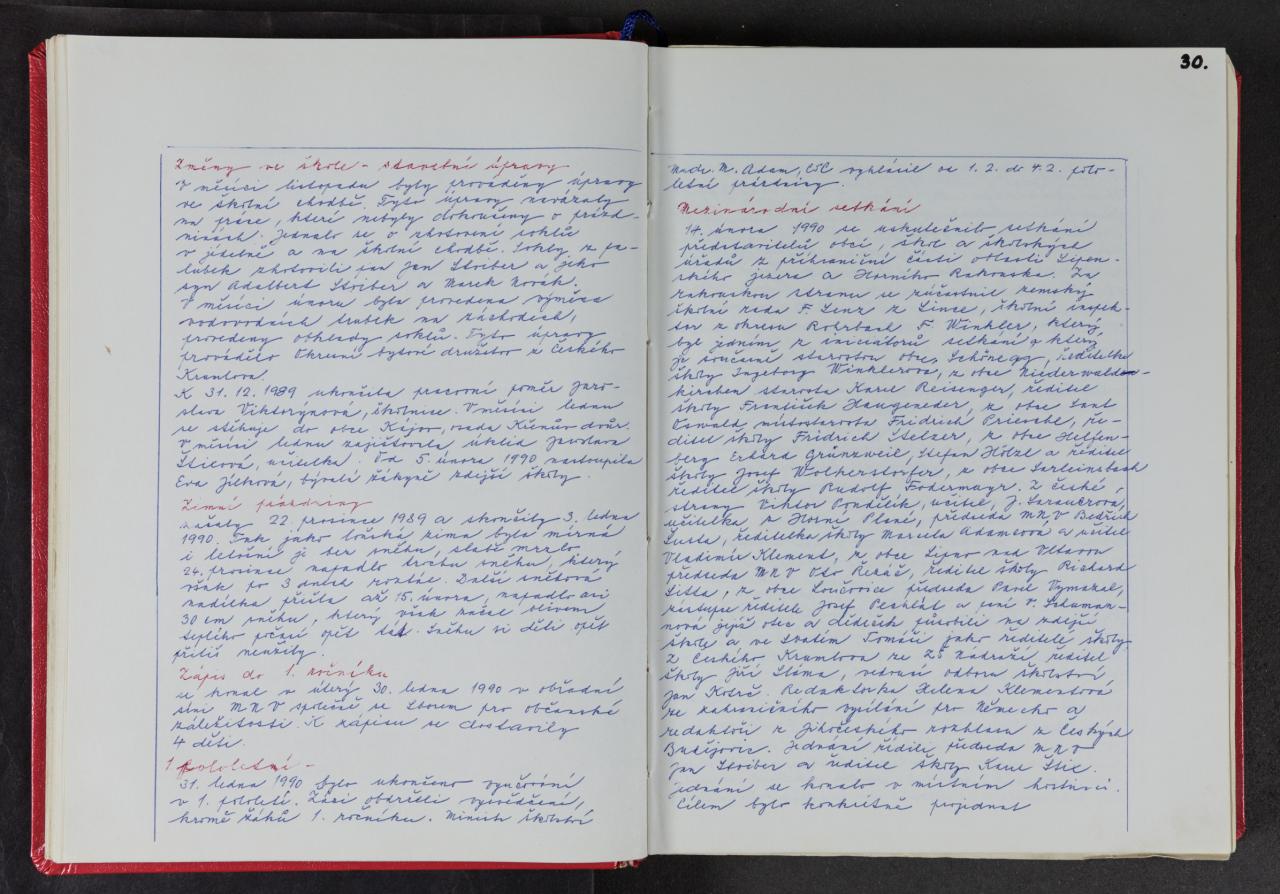 Změny ve škole - stavební úpravy
V měsíci listopadu byly prováděny úpravy
ve školní chodbě. Tyto úpravy navázaly
na práce, které nebyly dokončeny o prázd-
ninách. Jednalo se o zhotovení soklů
v jídelně a na školní chodbě. Sokly z pa-
lubek zhotovili pan Jan Stoiber a jeho
syn Adalbert Stoiber a Marek Novák.
V měsíci únoru byla provedena výměna
vodovodních trubek na záchodech,
provedeny obklady soklů. Tyto úpravy
provádělo Okresní bytové družstvo z Českého
Krumlova.
K 31. 12. 1989 ukončila pracovní poměr Jaro-
slava Viktorýnová, školnice. V měsíci lednu
se stěhuje do obce Kájov, osada Křenův dvůr.
V měsíci lednu zajišťovala úklid Jaroslava
Šticová, učitelka. Od 5. února 1990 nastoupila
Eva Jílková, bývalá žákyně zdejší školy.
Zimní prázdniny
začaly 22. prosince 1989 a skončily 3. ledna
1990. Tak jako loňská zima byla mírná
i letošní je bez sněhu, slabě mrzlo
24. prosince napadlo trochu sněhu, který
však po 3 dnech roztál. Další sněhová
nadílka přišla až 15. února, napadlo asi
30 cm sněhu, který však začal vlivem
teplého počasí opět tát. Sněhu si děti opět
příliš neužily.
Zápis do 1. ročníku
se konal v úterý 30. ledna 1990 v obřadní
síni MNV společně se Sborem pro občanské
záležitosti. K zápisu se dostavily
4 děti.
1 pololetní -
31. ledna 1990 bylo ukončeno vyučování
v 1. pololetí. Žáci obdrželi vysvědčení,
kromě žáků 1. ročníku. Ministr školství
30.
M. Adam, CSC vyhlásil od 1. 2. do 4. 2. polo-
letní prázdniny.
Mezinárodní setkání
14. února 1990 se uskutečnilo setkání
představitelů obcí, škol a školských
úřadů z příhraniční části oblasti Lipen-
ského jezera a Horního Rakouska. Za
rakouskou stranu se zúčastnil zemský
školní rada F. Lenz z Lince, školní inspek-
tor z okresu Rohrbach F. Winkler, který
byl jedním z iniciátorů setkání a který
je současně starostou obce Schönegg, ředitelka
školy Ingeborg Winklerová, z obce Niederwalden-
kirchen starosta Karel Reisenger, ředitel
školy František Haugeneder, z obce Sant
Oswald místostarosta Fridrich Priesbe, ře-
ditel školy Fridrich Stelzer, z obce Helfen-
berg Erhard Grünzweil, Stefan Hölzl a ředitel
školy Josef Wolkerstorfer, z obce Sarleinsbach
ředitel školy Rudolf Fodermayr. Z české
strany Viktor Pondělík, učitel, J.
učitelka z Horní Plané, předseda MNV Bedřich
Šusta, ředitelka školy Marcela Adamcová a učitel
Vladimír Klement, z obce Lipno nad Vltavou
předseda MNV Oto Řezáč, ředitel školy Richard
z obce Loučovice předseda Pavel Vymazal,
zástupce ředitele Josef Peshát a paní V. Schuman-
nová jejíž otec a dědeček působili na zdejší
škole a ve Svatém Tomáši jako ředitelé školy.
Z Českého Krumlova ze ZŠ Nádraží ředitel
školy Jiří Sláma, vedoucí odboru školství
Jan Kotrč. Redaktorka Helena Klementová
ze zahraničního vysílání pro Německo a
redaktoři z Jihočeského rozhlasu z Českých
Budějovic. Jednání řídili předseda MNV
Jan Stoiber a ředitel školy Karel Štic.
Jednání se konalo v místním hostinci.
Cílem bylo konkrétně projednat